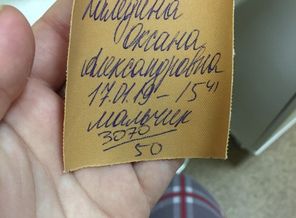 Оксана
Александровна
17.01.19 - 15 41
мальчик
3070
50